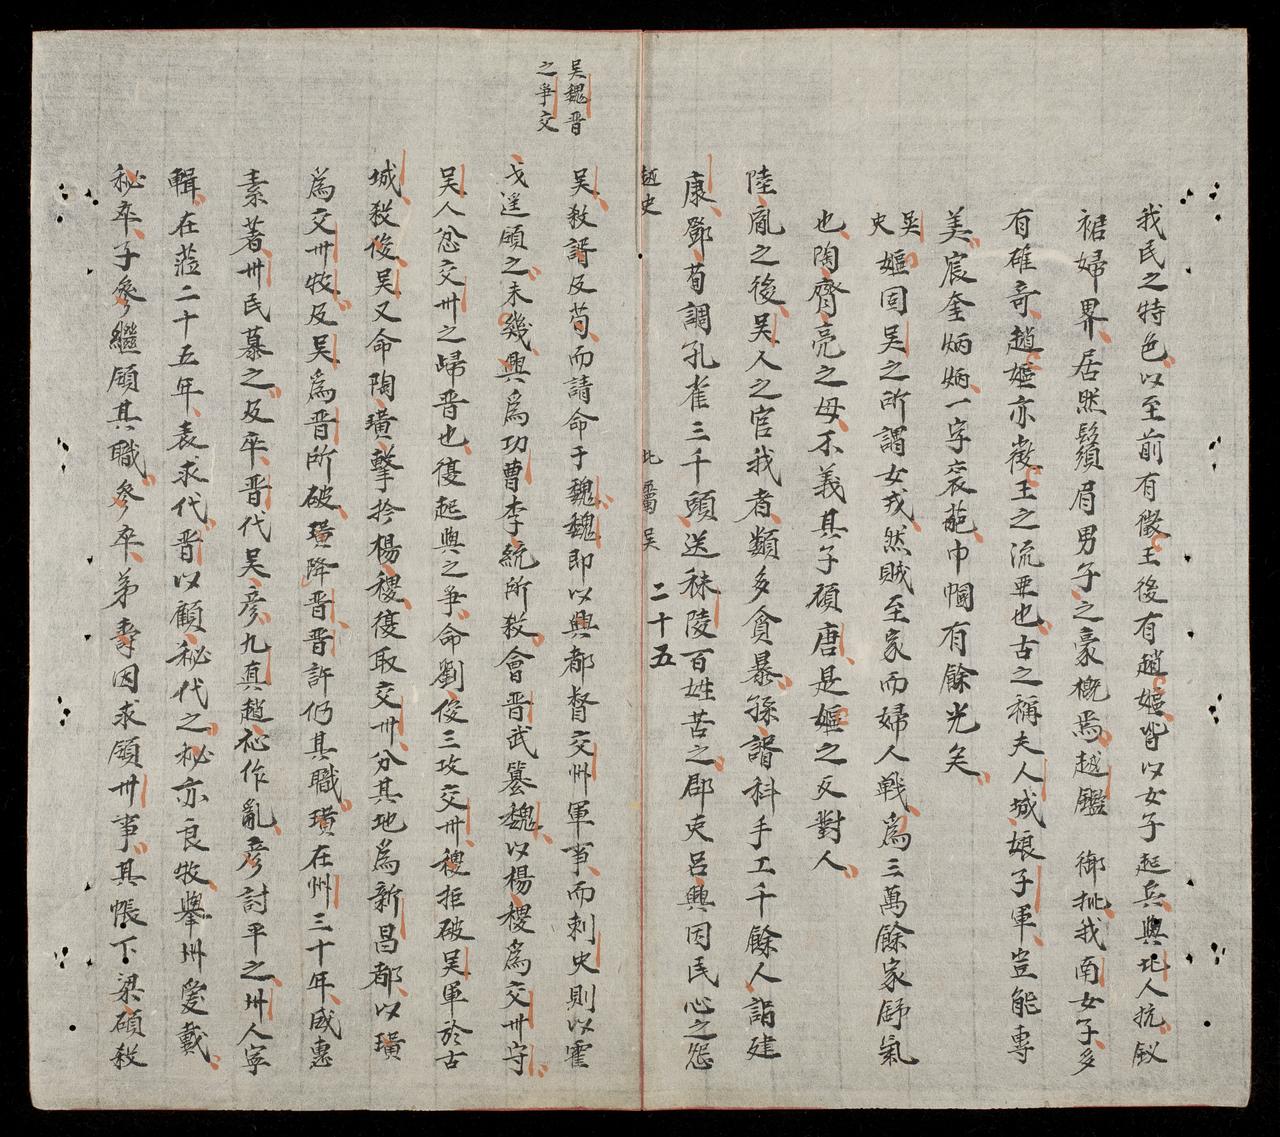 我民之特色以至前有徵王後有趙嫗皆以女子起兵與北人抗釵
裾婦界居然鬚眉男子之豪概焉越鑑 御批我南女子多
有確奇趙嫗亦徵王之流亜也古之稱夫人城娘子軍豈能專
美宸奎炳炳一字衮葩巾幗有餘光矣
吳史
嫗固吳之所謂女戎然賊至家而婦人戰為三萬餘家舒氣
也陶齊亮之母不義其子頑唐是嫗之反對人
陸胤之後吳人之官我者類多貪暴孫諝科手工千餘人詣建
康鄧荀調孔雀三千頭送秣陵百姓苦之郡吏呂興因民心之怨
越史 北屬吳 二十五
吳魏晋
之爭交
吳殺諝及荀而請命于魏魏即以興都督交州軍事而刺史則以霍
弋遥領之未幾興為功曹李統所殺會晋武簒魏以楊稷為交州守
吳人忿交州之歸晋也復起與之爭命劉俊三攻交州稷拒破吳軍於古
城殺俊吳又命陶璜擊於楊稷復取交州分其地為新昌郡以璜
為交州牧及吳為晋所破璜降晋晋許仍其職璜在州三十年威惠
素著州民慕之及卒晋代吳彥九真趙祉作亂彥討平之州人寧
輯在蒞二十五年表求代晋以顧秘代之秘亦良牧舉州愛戴
秘卒子參繼領其職參卒弟壽因求領州事其帳下梁碩殺